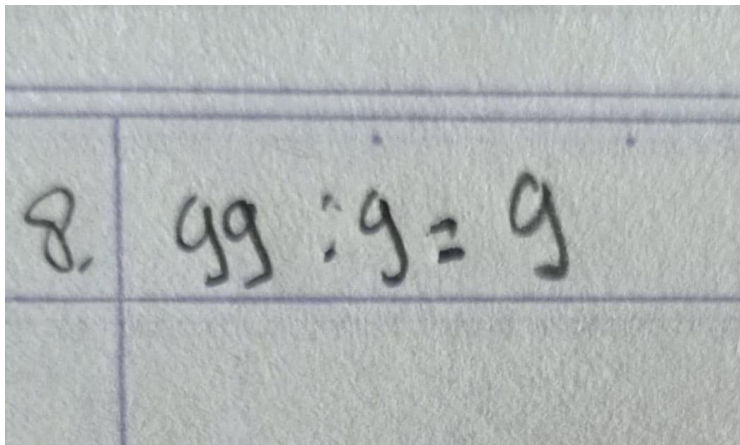 8. 99 : 9 = 9